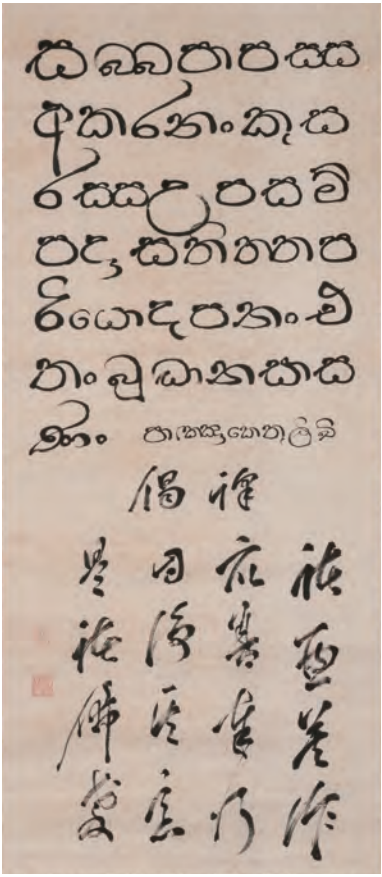 සබ්බපාපස්ස
අකරනංකුස
රස්සඋපසම්
පදාසතිත්තප
රියොදපනංඑ
තංබුද්ධානසාස
ණං
譯偈
諸悪莫作
衆善奉行
自浄其意
是諸佛教